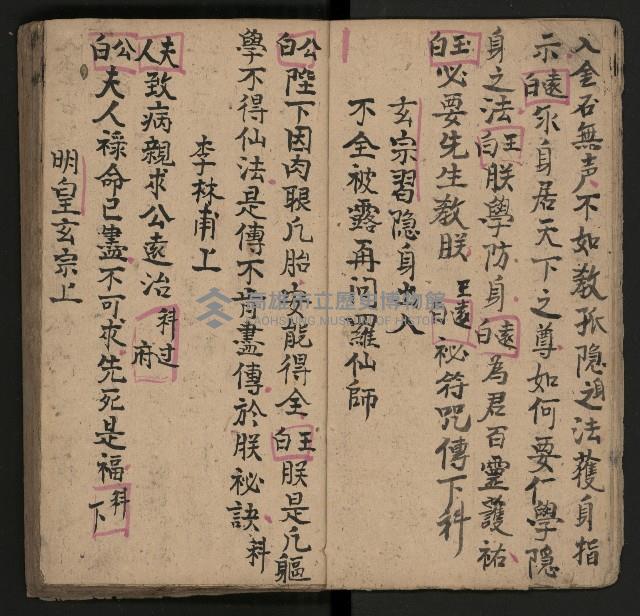 入金石無声不如教孤隐之法獲身指
示遠白汝身居天下之尊如何要仁學隐
身之法王白朕學防身遠白為君百靈護祐
王白必要先生教朕王白遠秘符咒傳下科
玄宗習隐身大人
不全被露再问羅仙師
公白陛下因肉眼凡胎安能得全王白朕是凡軀
學不得仙法是傳不肯盡傳於朕秘訣科
李林甫上
夫人致病親求公遠冶科过府
公白夫人祿命已盡不可求先死是福科下
明皇玄宗上
高雄市立歷史博物館
KAOHSIUNG MUSEUM OF HISTORY